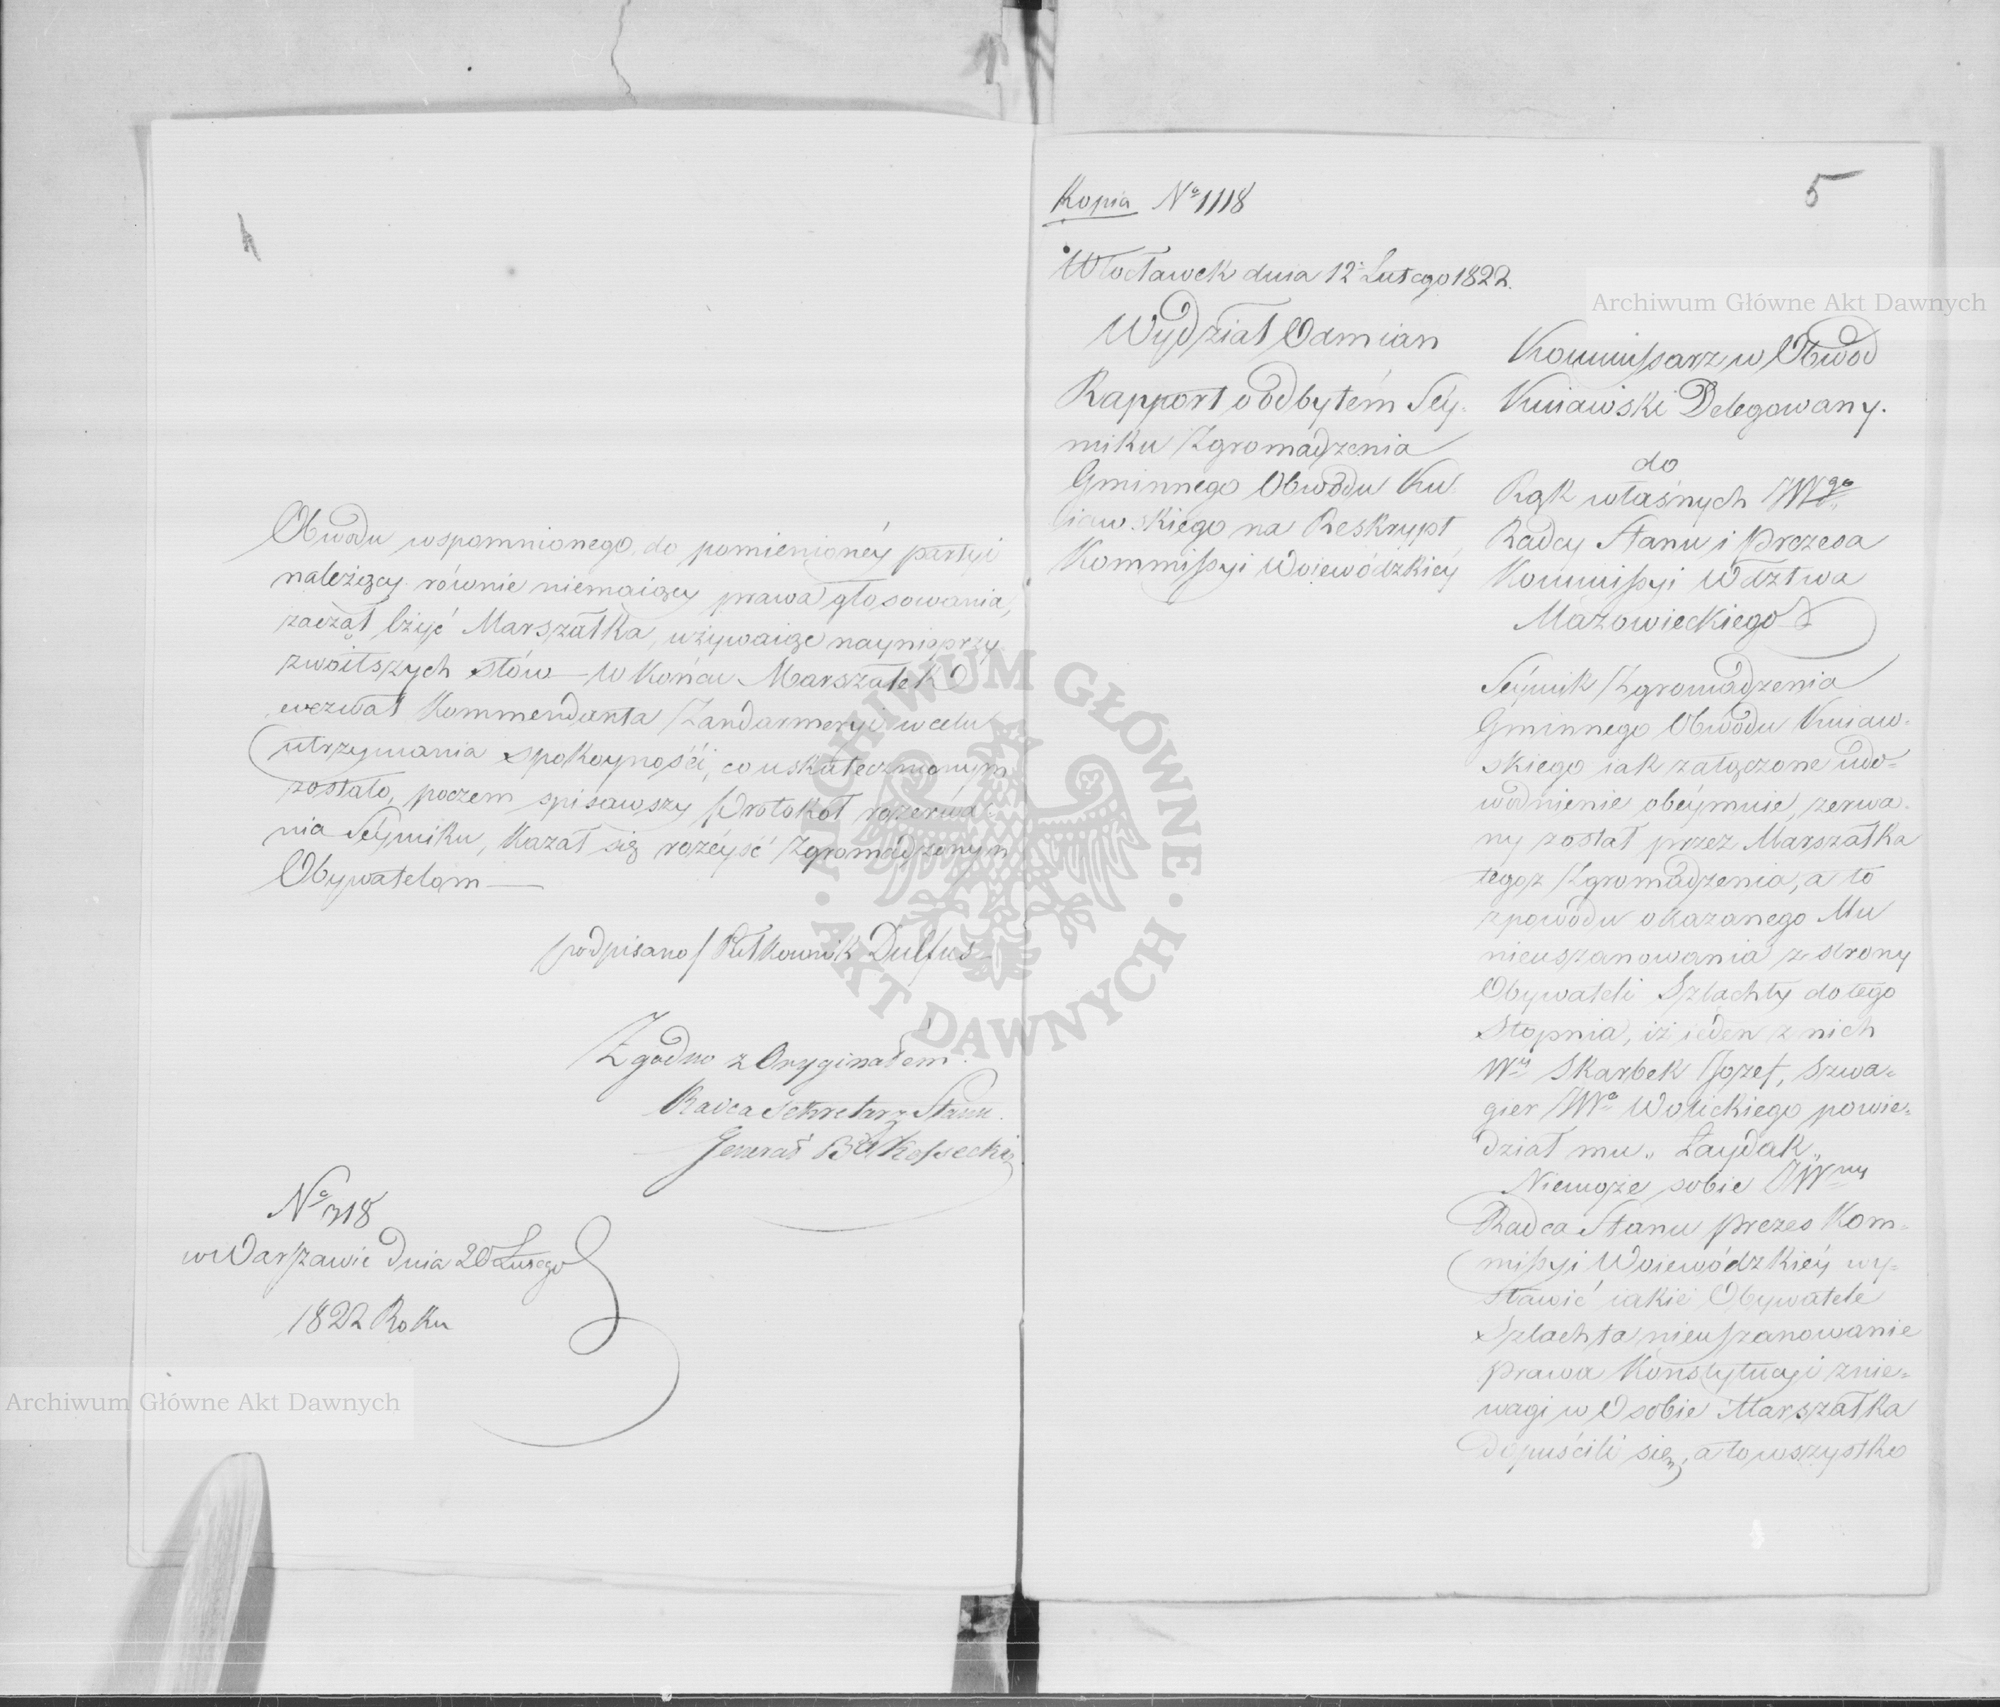 Obwodu wspomnionego, do pomienionéy partyi
należący równie niemaiący prawa głosowania,
zaczął lżyć Marszałka, używaiąc naynieprzy
zwoitszych słów — w końcu Marszałek
wezwał Kommendanta Żandarmeryi w celu
utrzymania spokoyności, co uskutecznionym
zostało, poczem spisawszy Protokół rozerwa-
nia Séymiku, kazał się rozéyść Zgromadzonym
Obywatelom —
podpisano/ Półkownik Dulfus
Zgodno z Oryginałem.
Radca Sekretarz Stanu
Generał Bdy Kossecki
No 318
w Warszawie dnia 20 Lutego
1822 Roku
5
Kopia No 1118
Włocławek dnia 12 Lutego 1822.
Wydział
Rapport o odbytém Séy-
miku Zgromadzenia
Gminnego Obwodu Ku
iawskiego na Reskrypt
Kommissyi Woiewódzkiéy
Kommissarz w Obwód
Kuiawski Delegowany.
do
Rąk własnych JWgo
Radcy Stanu i Prezesa
Kommissyi Wdztwa
Mazowieckiego
Séymik Zgromadzenia
Gminnego Obwodu Kuiaw-
skiego iak załączone udo-
wodnienie obéymuie, zerwa-
ny został przez Marszałka
tegoż Zgromadzenia, a to
z powodu okazanego Mu
nieuszanowania z strony
Obywateli Szlachty do tego
Stopnia, iż ieden z nich
Wny Skarbek Jozef, Szwa-
gier JWo Wolickiego powie-
dział mu „Łaydak„
Niemoże sobie JWny
Radca Stanu Prezes Kom-
missyi Woiewódzkiéy wy-
stawić iakie Obywatele
Szlachta nieuszanowanie
prawa Konstytucyi znie-
wagi w Osobie Marszałka
dopuścili się, a to wszystko
Archiwum Główne Akt Dawnych
Archiwum Główne Akt Dawnych
ARCHIWUM GŁÓWNE
AKT DAWNYCH